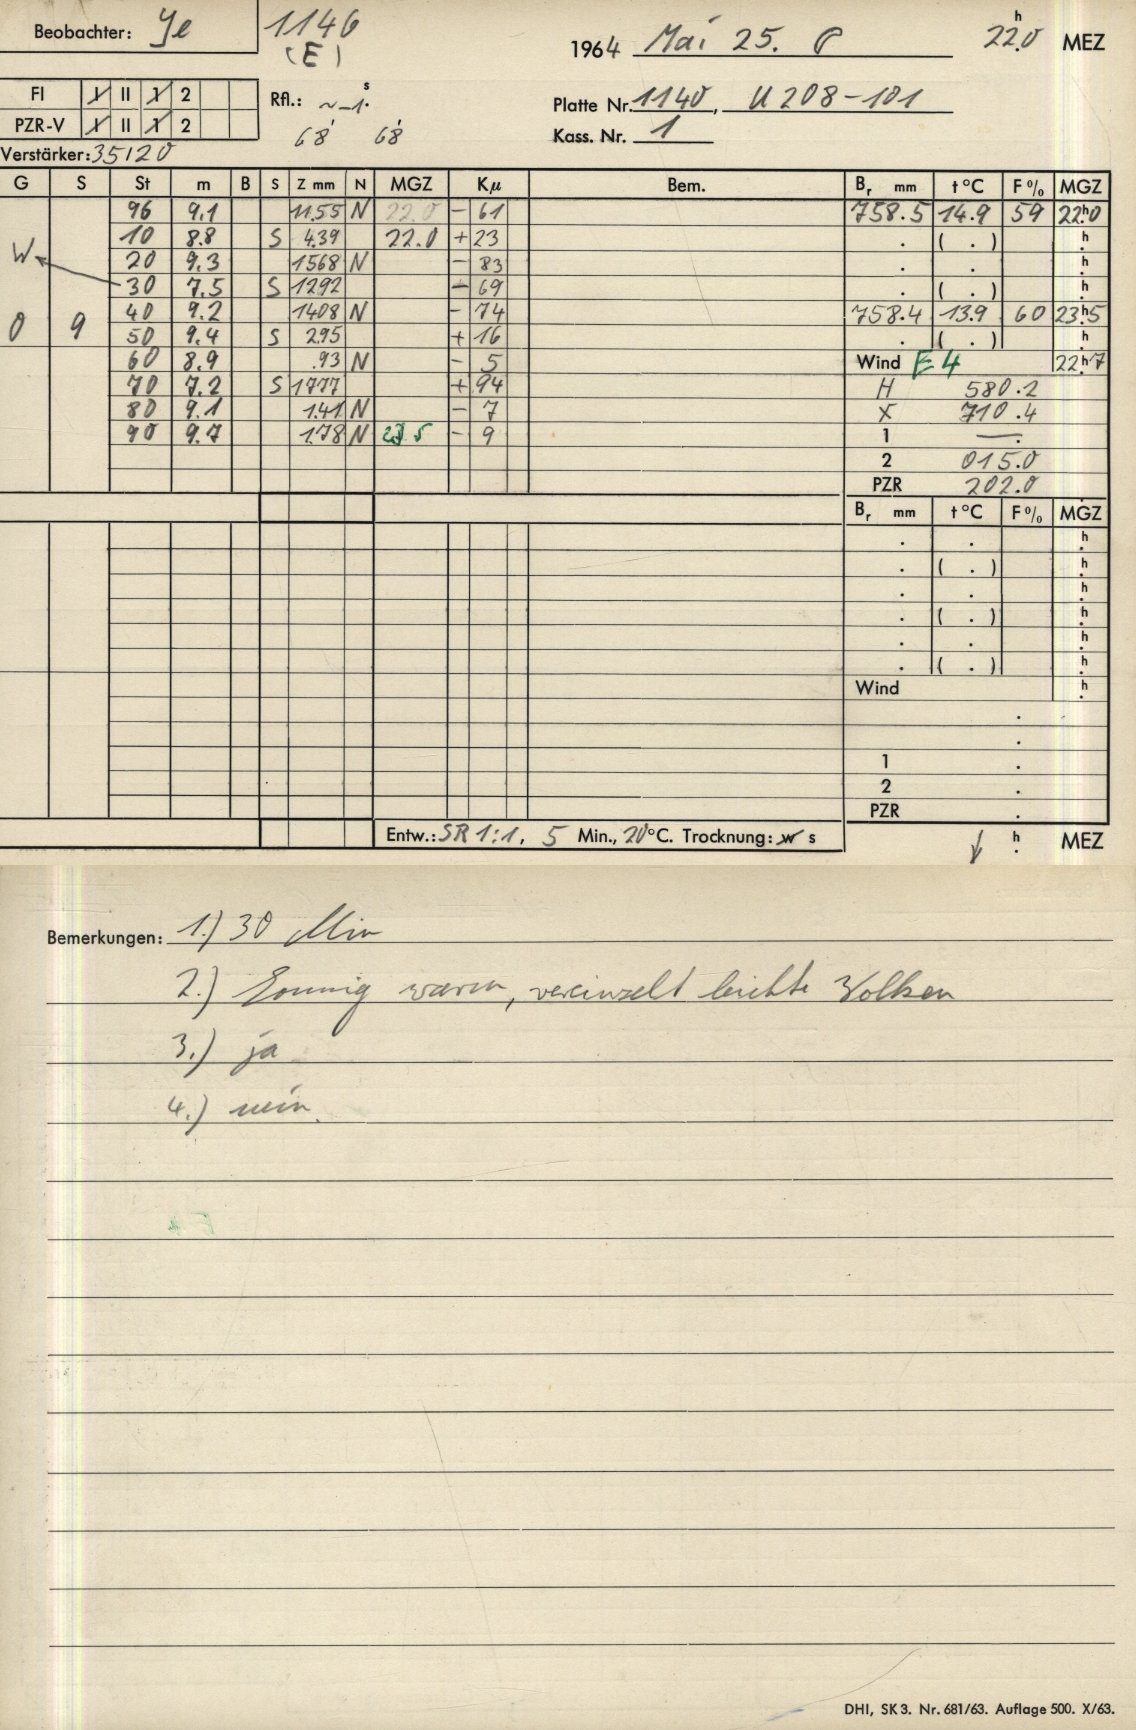 Beobachter: Je 1146
(E)
1964 Mai 25. 22.0 h MEZ
FI I II 1 2
PZR-V I II 1 2
Rfl.: ~ -1. s
68 68
Platte Nr. 1140, U 208-101
Kass. Nr. 1
Verstärker: 35120
G S St m B S Z mm N MGZ Kμ Bem. Br mm t°C F% MGZ
96 9.1 11.55 N 22.0 - 61 758.5 14.9 59 22h0
10 8.8 S 4.39 22.0 + 23 . ( . ) h
W 20 9.3 1568 N - 83 . . h
30 7.5 S 1292 - 69 . ( . ) h
40 9.2 1408 N - 74 758.4 13.9 60 23h5
0 9 50 9.4 S 2.95 + 16 . ( . ) h
60 8.9 .93 N - 5 Wind E 4 22h7
70 7.2 S 1777 + 94 H 580.2
80 9.1 1.41 N - 7 X 710.4
90 9.7 1.78 N 23.5 - 9 1 — .
2 015.0
PZR 202.0
Br mm t°C F% MGZ
. . h
. ( . ) h
. . h
. ( . ) h
. . h
. ( . ) h
Wind h
.
.
1 .
2 .
PZR .
Entw.: SR 1:1, 5 Min., 20°C. Trocknung: w s
h MEZ
Bemerkungen: 1.) 30 Min
2.) Sonnig warm, vereinzelt leichte Wolken
3.) ja
4.) nein.
DHI, SK 3. Nr. 681/63. Auflage 500. X/63.